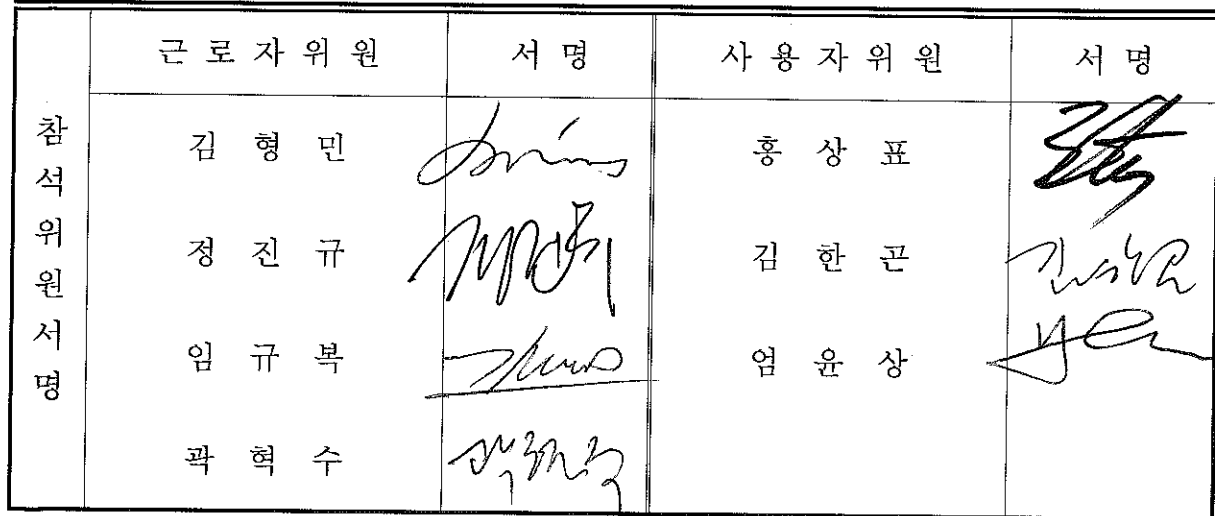 근로자위원 서명 사용자위원 서명
참석위원서명
김형민 홍상표
정진규 김한곤
임규복 엄윤상
곽혁수 곽혁수